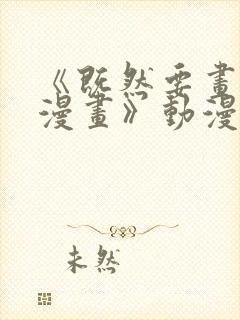 《既然要畫
漫畫》動漫
未然